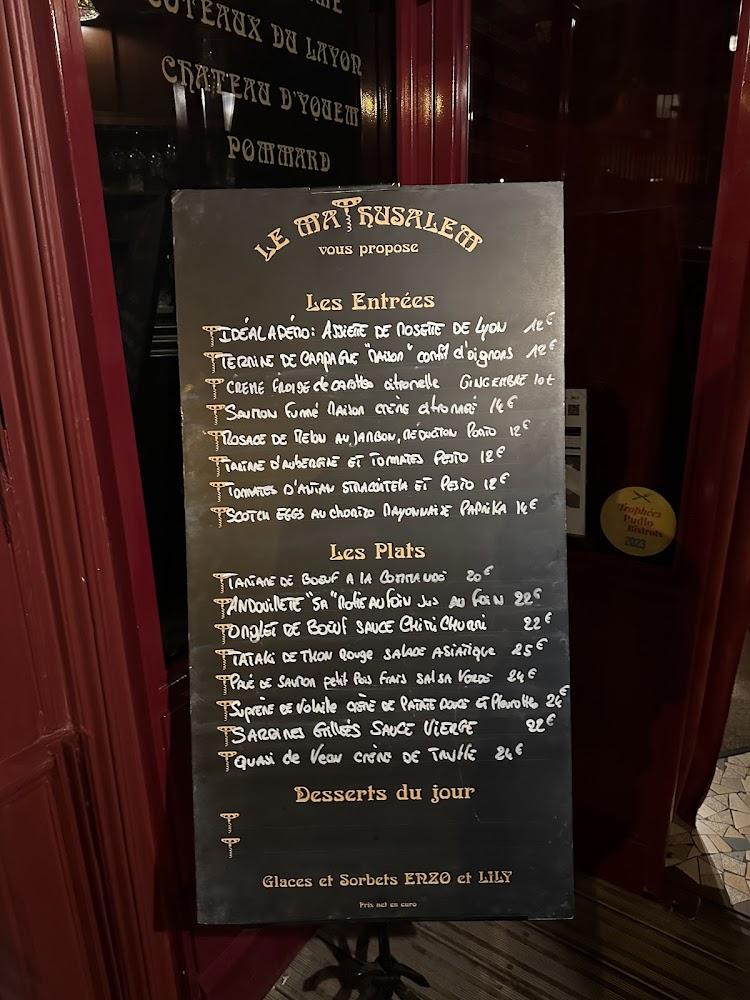 COTEAUX DU LAYON
CHATEAU D'YQUEM
POMMARD
LE MATHUSALEM
vous propose
Les Entrées
IDÉAL APÉRO: ASSIETTE DE ROSETTE DE LYON 12€
TERRINE DE CAMPAGNE "MAISON" confit d'oignons 12€
CREME FROIDE de carottes citronelle GINGEMBRE 10€
SAUMON FUMÉ MAISON CRÈME citronnée 14€
ROSACE DE MELON AU JAMBON, RÉDUCTION PORTO 12€
TARTARE D'AUBERGINE ET TOMATES PESTO 12€
TOMATES D'ANTAN STRACCIATELLA ET PESTO 12€
SCOTCH EGGS AU CHORIZO MAYONNAISE PAPRIKA 14€
Les Plats
TARTARE DE BOEUF A LA COMMANDE 20€
ANDOUILLETTE "5A" ROTIE AU FOIN JUS AU FOIN 22€
ONGLET DE BOEUF SAUCE CHIMI CHURRI 22€
TATAKI DE THON ROUGE SALADE ASIATIQUE 25€
PAVÉ DE SAUMON petit Pois FRAIS SALSA VERDE 24€
SUPRÊME DE VOLAILLE CRÈME DE PATATE DOUCE ET Pleurottes 24€
SARDINES GRILLÉES SAUCE VIERGE 22€
QUASI de VEAU CRÈME DE TRUFFE 24€
Desserts du jour
Glaces et Sorbets ENZO et LILY
Prix net en euro
Trophées
Pudlo
Bistrots
2023